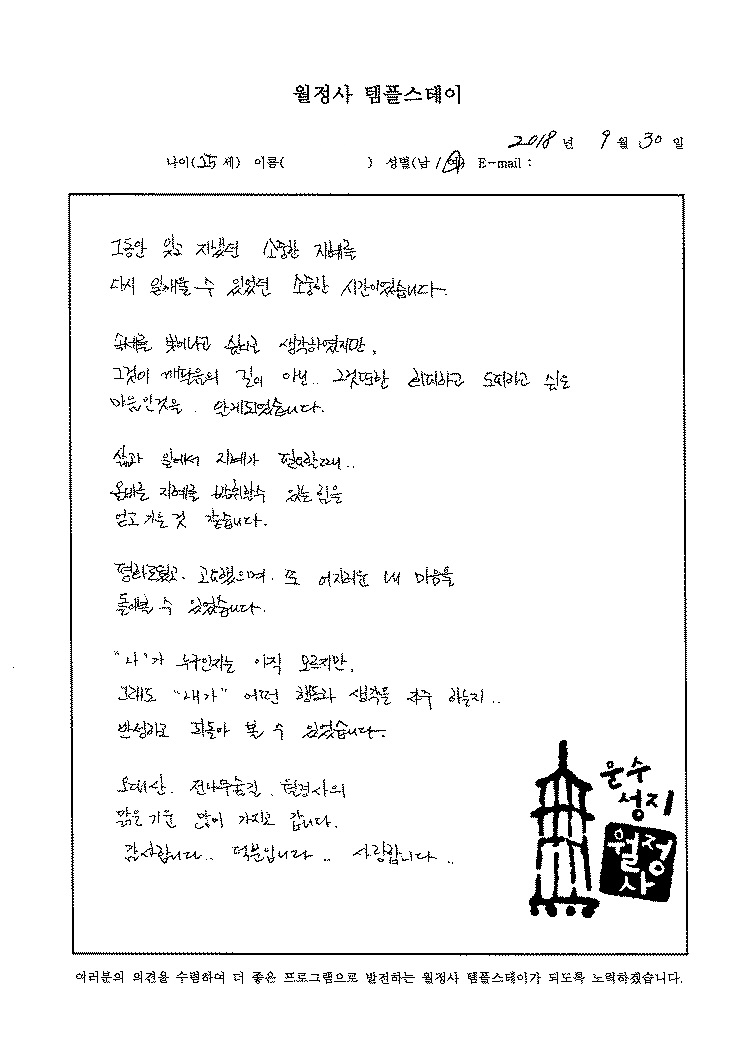 월정사 템플스테이
2018 년 9 월 30 일
나이(25 세) 이름( ) 성별(남 / 여) E-mail :
그동안 잊고 지냈던 소중한 지혜를
다시 일깨울 수 있었던 소중한 시간이었습니다.
속세를 벗어나고 싶다고 생각하였지만,
그것이 깨달음의 길이 아닌.. 그것또한 회피하고 도피하고 싶은
마음인것을. 알게되었습니다.
삶과 일에서 지혜가 필요할때..
올바른 지혜를 발휘할수 있는 힘을
얻고 가는 것 같습니다.
평화로웠고. 고요했으며. 또 어지러운 내 마음을
돌아볼 수 있었습니다.
"나"가 누구인지는 아직 모르지만,
그래도 "내가" 어떤 행동과 생각을 자주 하는지..
반성하고 되돌아 볼 수 있었습니다.
오대산. 전나무숲길. 월정사의
맑은 기운 많이 가지고 갑니다.
감사합니다.. 덕분입니다.. 사랑합니다..
문수
성지
월정
사
여러분의 의견을 수렴하여 더 좋은 프로그램으로 발전하는 월정사 템플스테이가 되도록 노력하겠습니다.